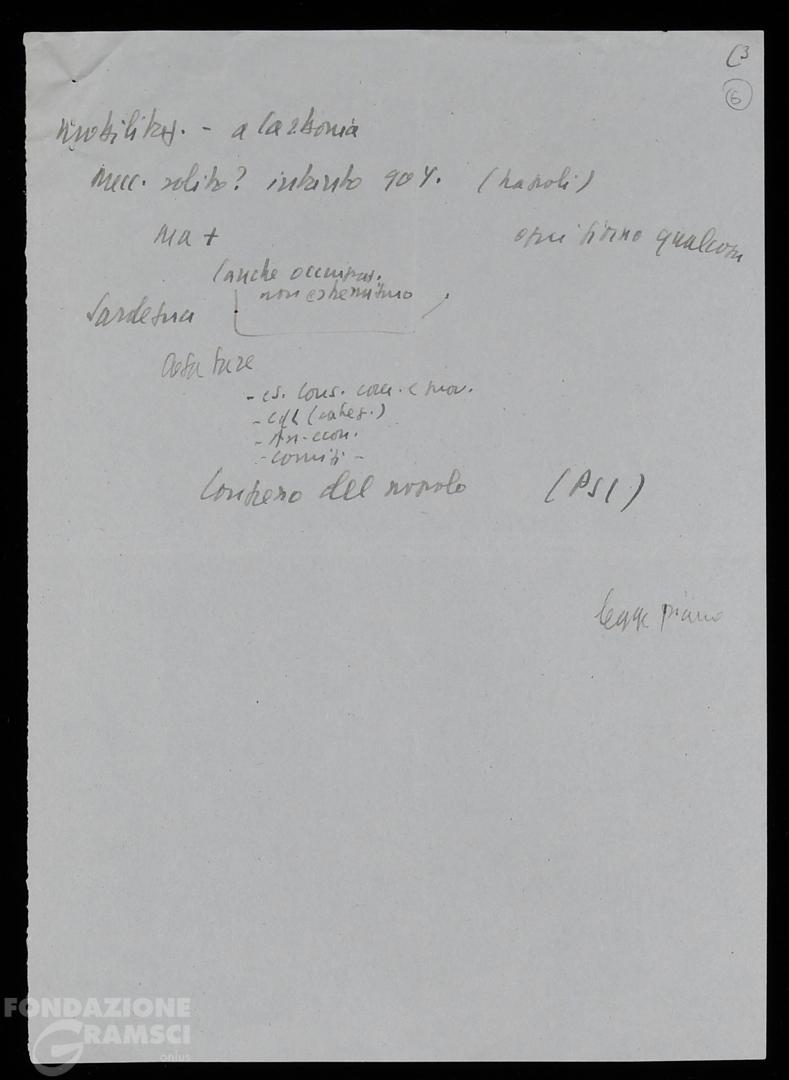 C3
6
mobilitaz. - a Carbonia
Mecc. solito? intanto 90%. (Napoli)
Ma +
ogni giorno qualcosa
(anche occupaz.
non estremismo
Sardegna
Cosa fare
- cons. com. e prov.
- CdL (categ.)
- comizi -
Congresso del popolo (PSI)
legge piano
FONDAZIONE
GRAMSCI
onlus